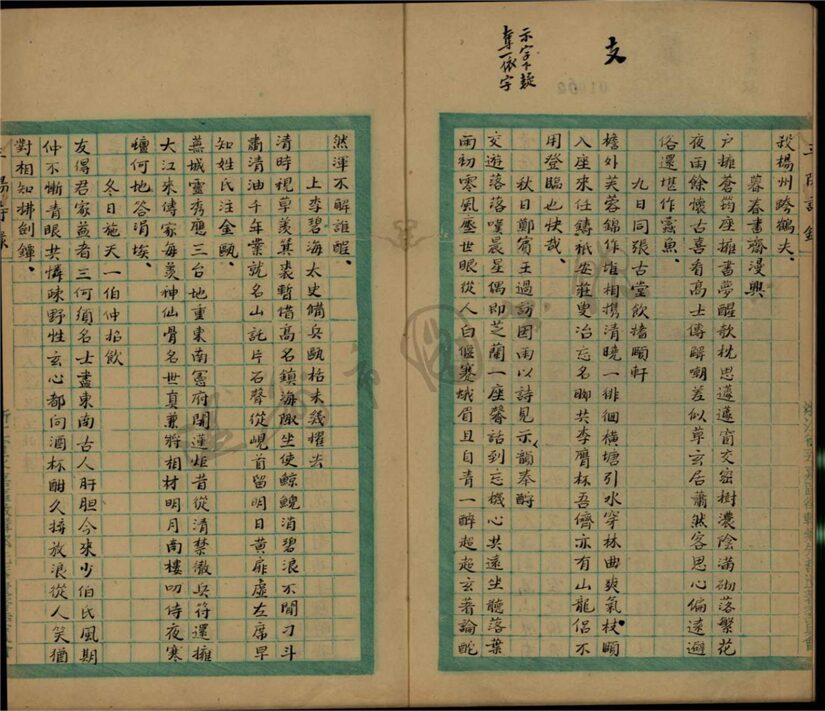 支
示字下疑
奪一依字
殺楊州跨鶴夫、
暮春書齋漫興
戶擁蒼筠座擁書夢醒欹枕思蘧蘧窗交密樹濃陰滿砌落繁花
夜雨餘懷古喜看高士傳解嘲差似草玄居蕭然客思心偏遠避
俗還堪作蠹魚、
九日同張古堂飲穡頤軒
檐外芙蓉錦作堆相携清曉一徘徊橫塘引水穿林曲爽氣杖頤
入座來任鑄祇安莊叟冶忘名聊共李膺杯吾儕亦有山龍侶不
用登臨也快哉、
秋日鄭賓王過訪因雨以詩見示、韻奉酧
交遊落落嘆晨星偶即芝蘭一座馨話到忘機心共遠坐聽落葉
雨初寒風塵世眼從人白偃蹇娥眉且自青一醉超超玄著論酡
然渾不解誰醒、
上李碧海太史備兵甌栝未幾擢去
清時視草羨箕裘暫借高名鎮海陬坐使鯨鯢消碧浪不聞刁斗
肅清油千年業就名山託片石聲從峴首留明日黃扉虛左席早
知姓氏注金甌、
蕪城靈秀應三台地重東南憲府開蓮炬昔從清禁徹兵符還擁
大江來傳家每羨神仙骨名世真兼將相材明月南樓叨侍夜寒
蠬何地答涓埃、
冬日施天一伯仲招飲
友倡君家益者三何須名士盡東南古人肝胆今來少伯氏風期
仲不慚青眼共憐疎野性玄心都向酒杯酣久擠放浪從人笑猶
對相知拂劍鐔、